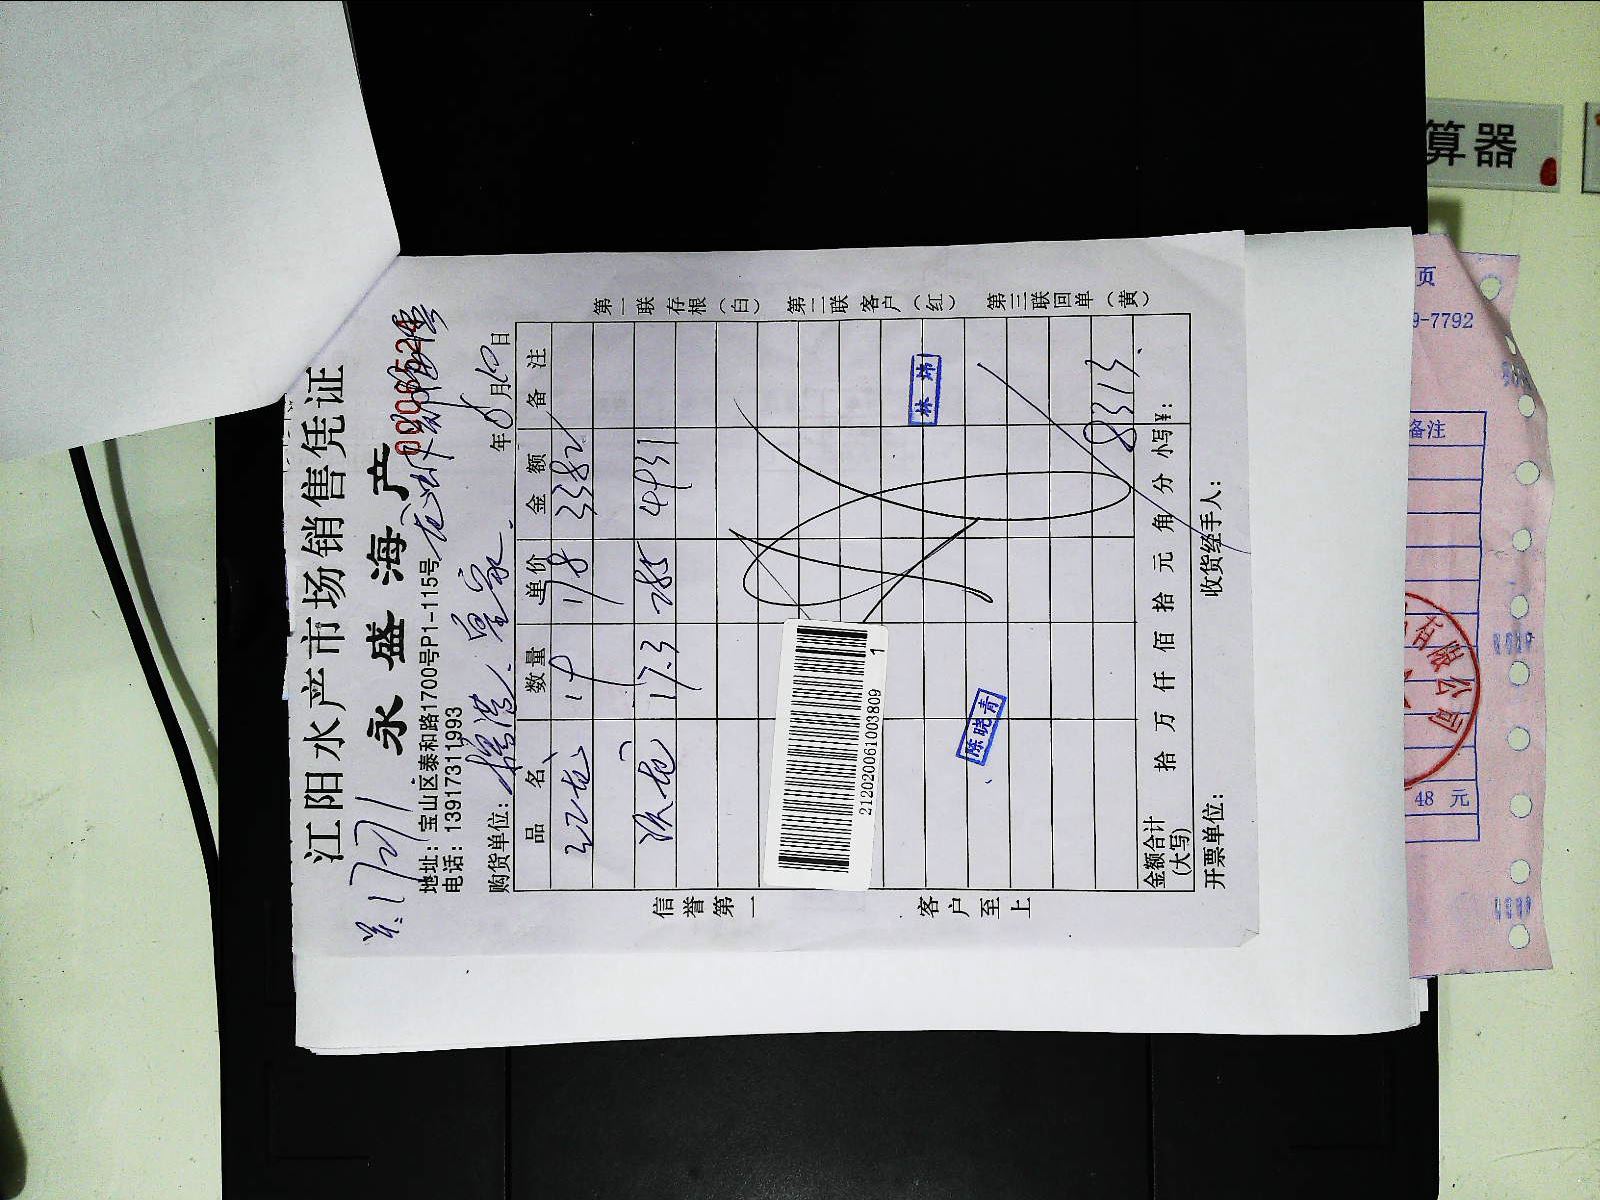 江阳水产市场销售凭证
永盛海产
地址：宝山区泰和路1700号P1-115号
电话：13917311993
购货单位：
年 8月10日
品名 数量 单价 金额 备注
红龙 19 178 3382
17.3 285 4931
8313
金额合计(大写) 拾 万 仟 佰 拾 元 角 分 小写¥：
开票单位： 收货经手人：
信誉第一 客户至上
第一联 存根（白） 第二联 客户（红） 第三联回单（黄）
林炜
陈晓青
2120200610003809 1
算器
页
9-7792
备注
48 元
限公司